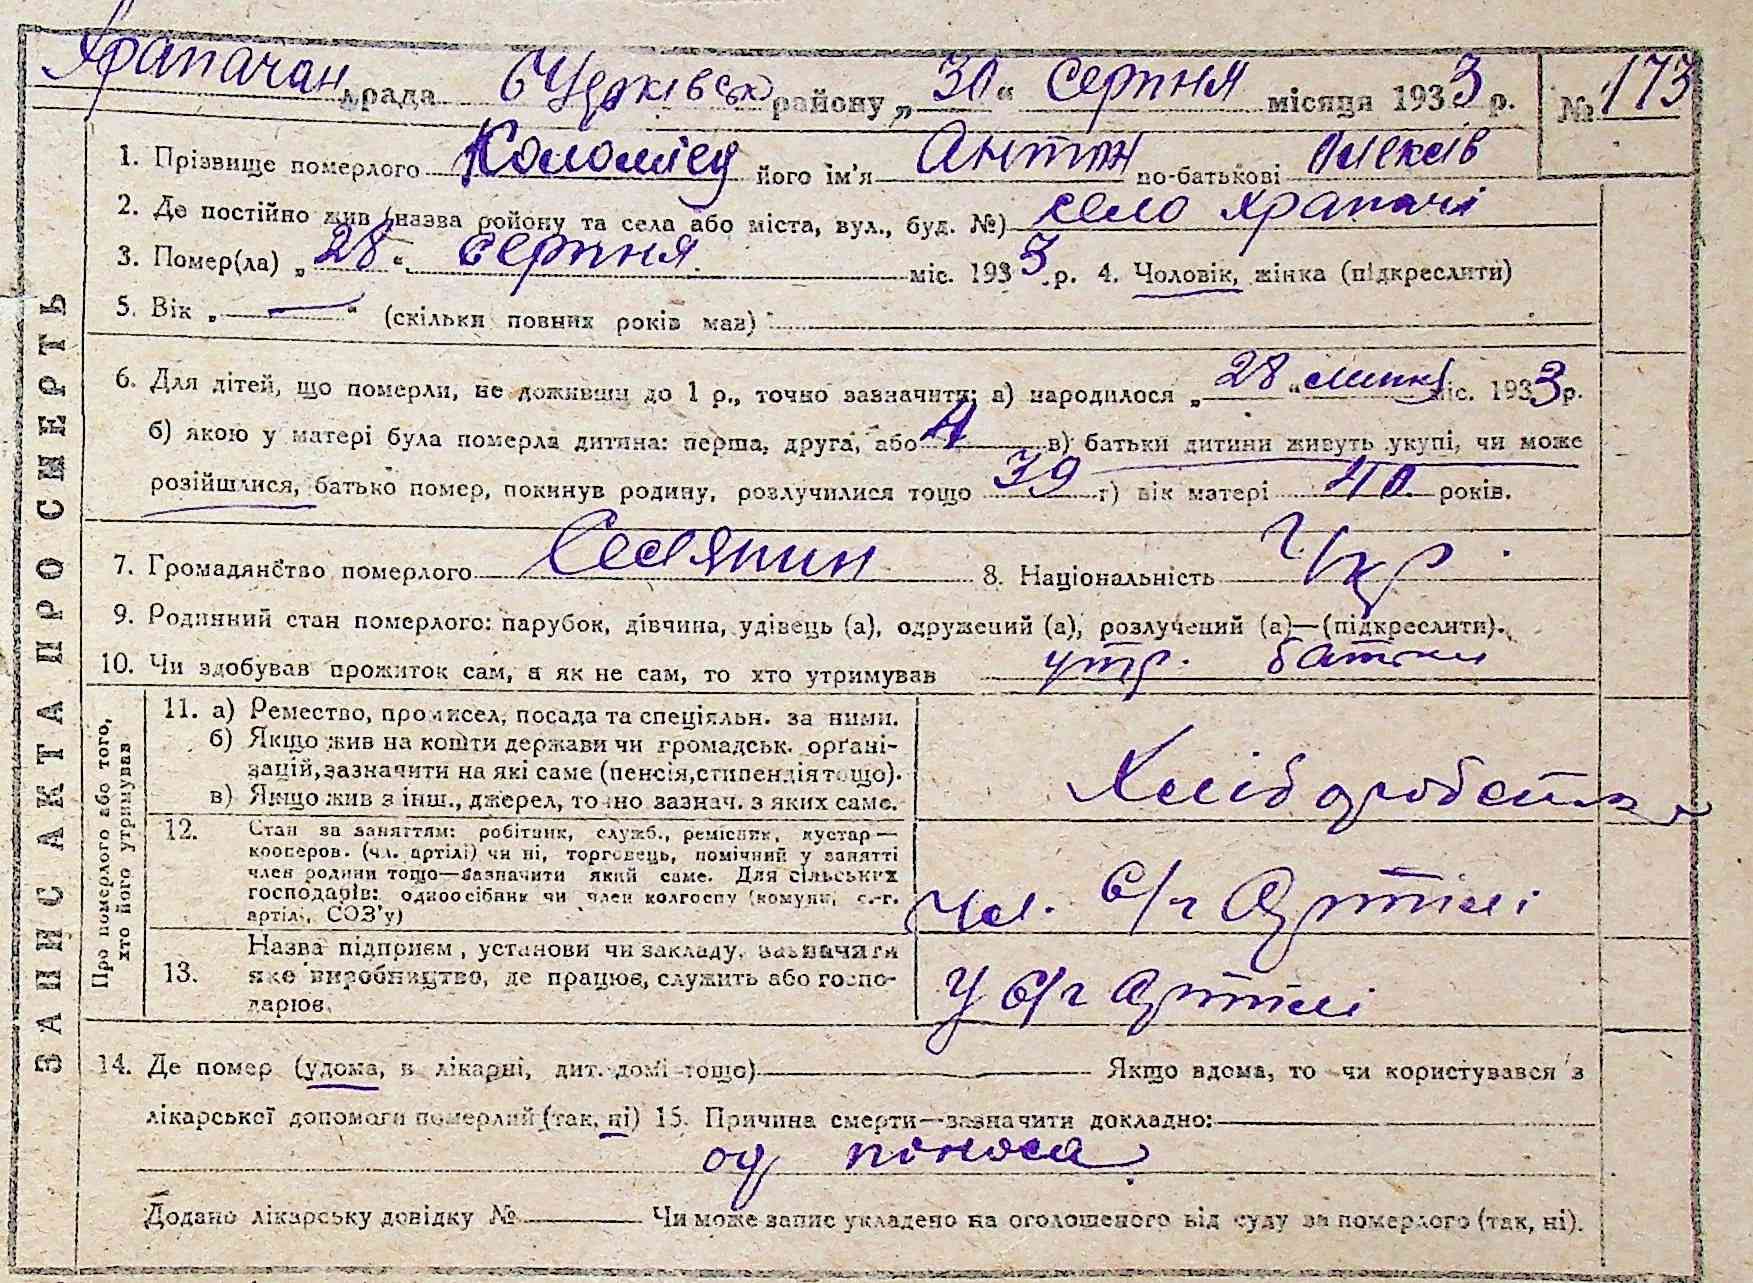 Храпачан рада БЦерківськ району „30“ серпня місяця 1933 р. № 173
1. Прізвище померлого Коломієц його ім'я Антон по-батькові Олексів
2. Де постійно жив (назва району та села або міста, вул., буд. №) село Храпачі
3. Помер(ла) „28“ серпня міс. 1933 р. 4. Чоловік, жінка (підкреслити)
5. Вік „—“ (скільки повних років мав)
6. Для дітей, що померли, не доживши до 1 р., точно зазначити: а) народилося „28“ липня міс. 1933 р.
б) якою у матері була померла дитина: перша, друга, або 4 в) батьки дитини живуть укупі, чи може
розійшлися, батько помер, покинув родину, розлучилися тощо 39 г) вік матері 40 років.
7. Громадянство померлого Селянин 8. Національність Укр.
9. Родинний стан померлого: парубок, дівчина, удівець (а), одружений (а), розлучений (а)—(підкреслити).
10. Чи здобував прожиток сам, а як не сам, то хто утримував утр. батьки
ЗАПИС АКТА ПРО СМЕРТЬ
Про померлого або того,
хто його утримував
11. а) Ремество, промисел, посада та спеціяльн. за ними.
б) Якщо жив на кошти держави чи громадськ. орґані-
зацій, зазначити на які саме (пенсія, стипендія тощо).
в) Якщо жив з інш., джерел, точно зазнач. з яких саме.
Хлібороб
12. Стан за заняттям: робітник, служб., ремісник, кустар—
кооперов. (чл. артілі) чи ні, торговець, помічний у занятті
член родини тощо—зазначити який саме. Для сільських
господарів: одноосібник чи член колгоспу (комуни, с.-г.
артілі, СОЗ'у)
чл. с/г Артілі
13. Назва підприєм., установи чи закладу, зазначити
яке виробництво, де працює, служить або госпо-
дарює.
У с/г Артілі
14. Де помер (удома, в лікарні, дит. домі тощо) Якщо вдома, то чи користувався з
лікарської допомоги померлий (так, ні) 15. Причина смерти—зазначити докладно:
од поноса
Додано лікарську довідку № Чи може запис укладено на оголошеного від суду за померлого (так, ні).